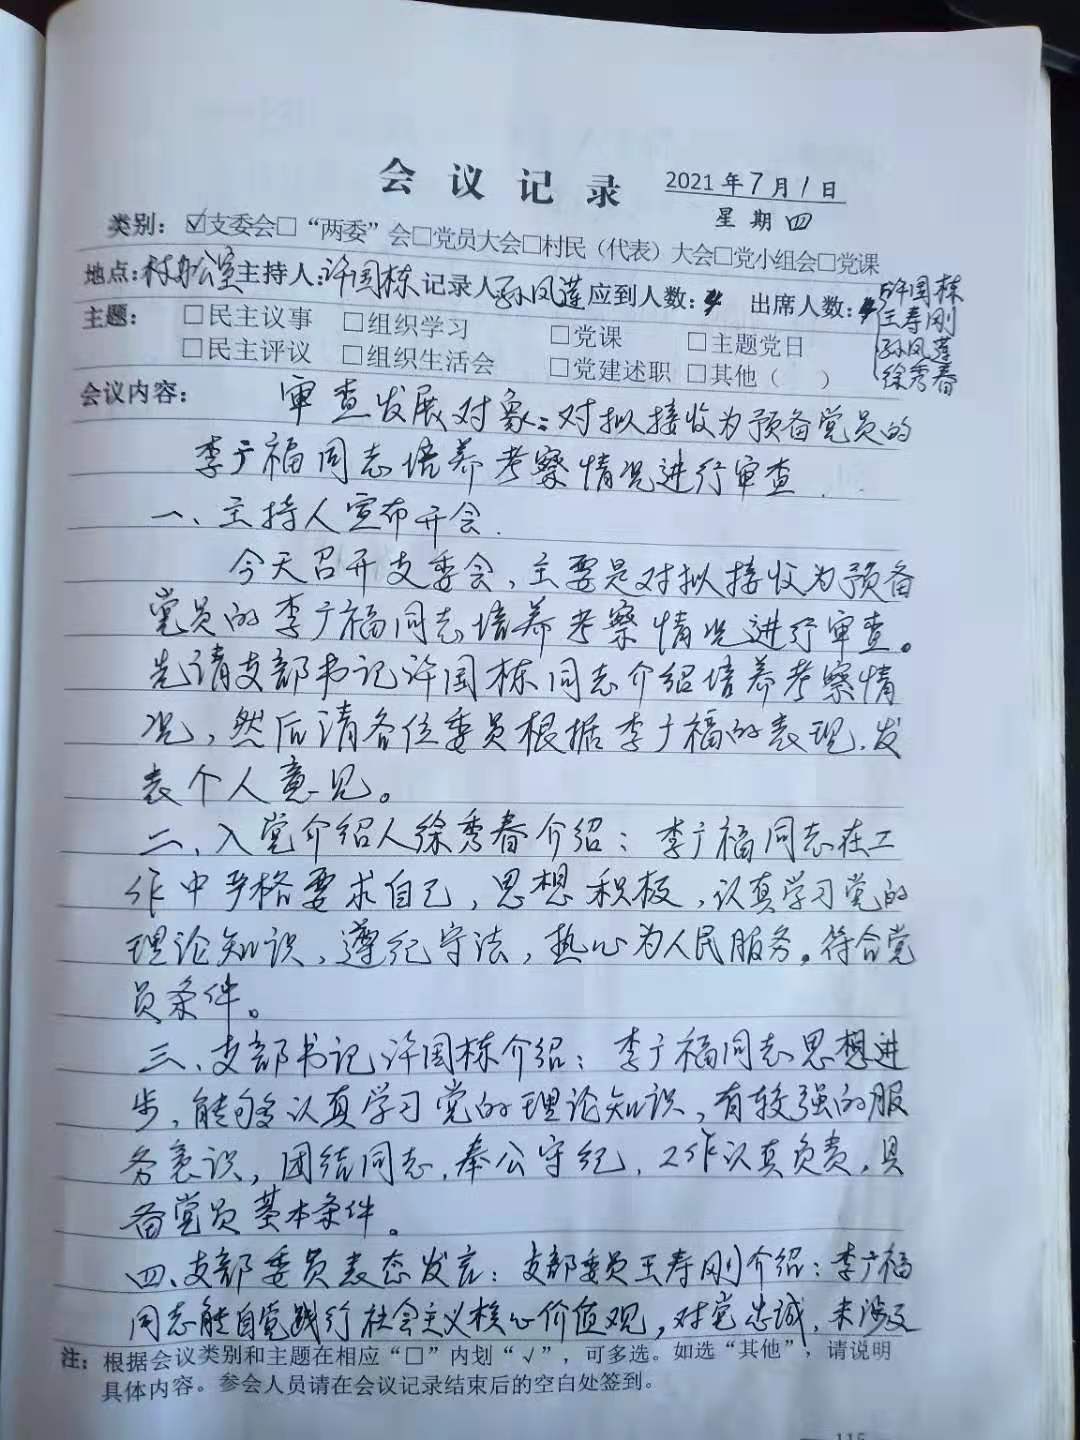 会议记录 2021年7月1日
星期四
类别：☑支委会□“两委”会□党员大会□村民（代表）大会□党小组会□党课
地点：村办公室主持人：许国栋记录人孙凤莲应到人数：4 出席人数：4 许国栋
王寿刚
孙凤莲
徐秀春
主题： □民主议事 □组织学习 □党课 □主题党日
□民主评议 □组织生活会 □党建述职 □其他（ ）
会议内容： 审查发展对象：对拟接收为预备党员的
李广福同志培养考察情况进行审查.
一、主持人宣布开会.
今天召开支委会，主要是对拟接收为预备
党员的李广福同志培养考察情况进行审查。
先请支部书记许国栋同志介绍培养考察情
况，然后请各位委员根据李广福的表现，发
表个人意见。
二、入党介绍人徐秀春介绍：李广福同志在工
作中严格要求自己，思想积极，认真学习党的
理论知识，遵纪守法，热心为人民服务。符合党
员条件。
三、支部书记许国栋介绍：李广福同志思想进
步，能够认真学习党的理论知识，有较强的服
务意识，团结同志，奉公守纪，工作认真负责，具
备党员基本条件。
四、支部委员表态发言：支部委员王寿刚介绍：李广福
同志能自觉践行社会主义核心价值观，对党忠诚，未涉及
注：根据会议类别和主题在相应“□”内划“√”，可多选。如选“其他”，请说明
具体内容。参会人员请在会议记录结束后的空白处签到。
115